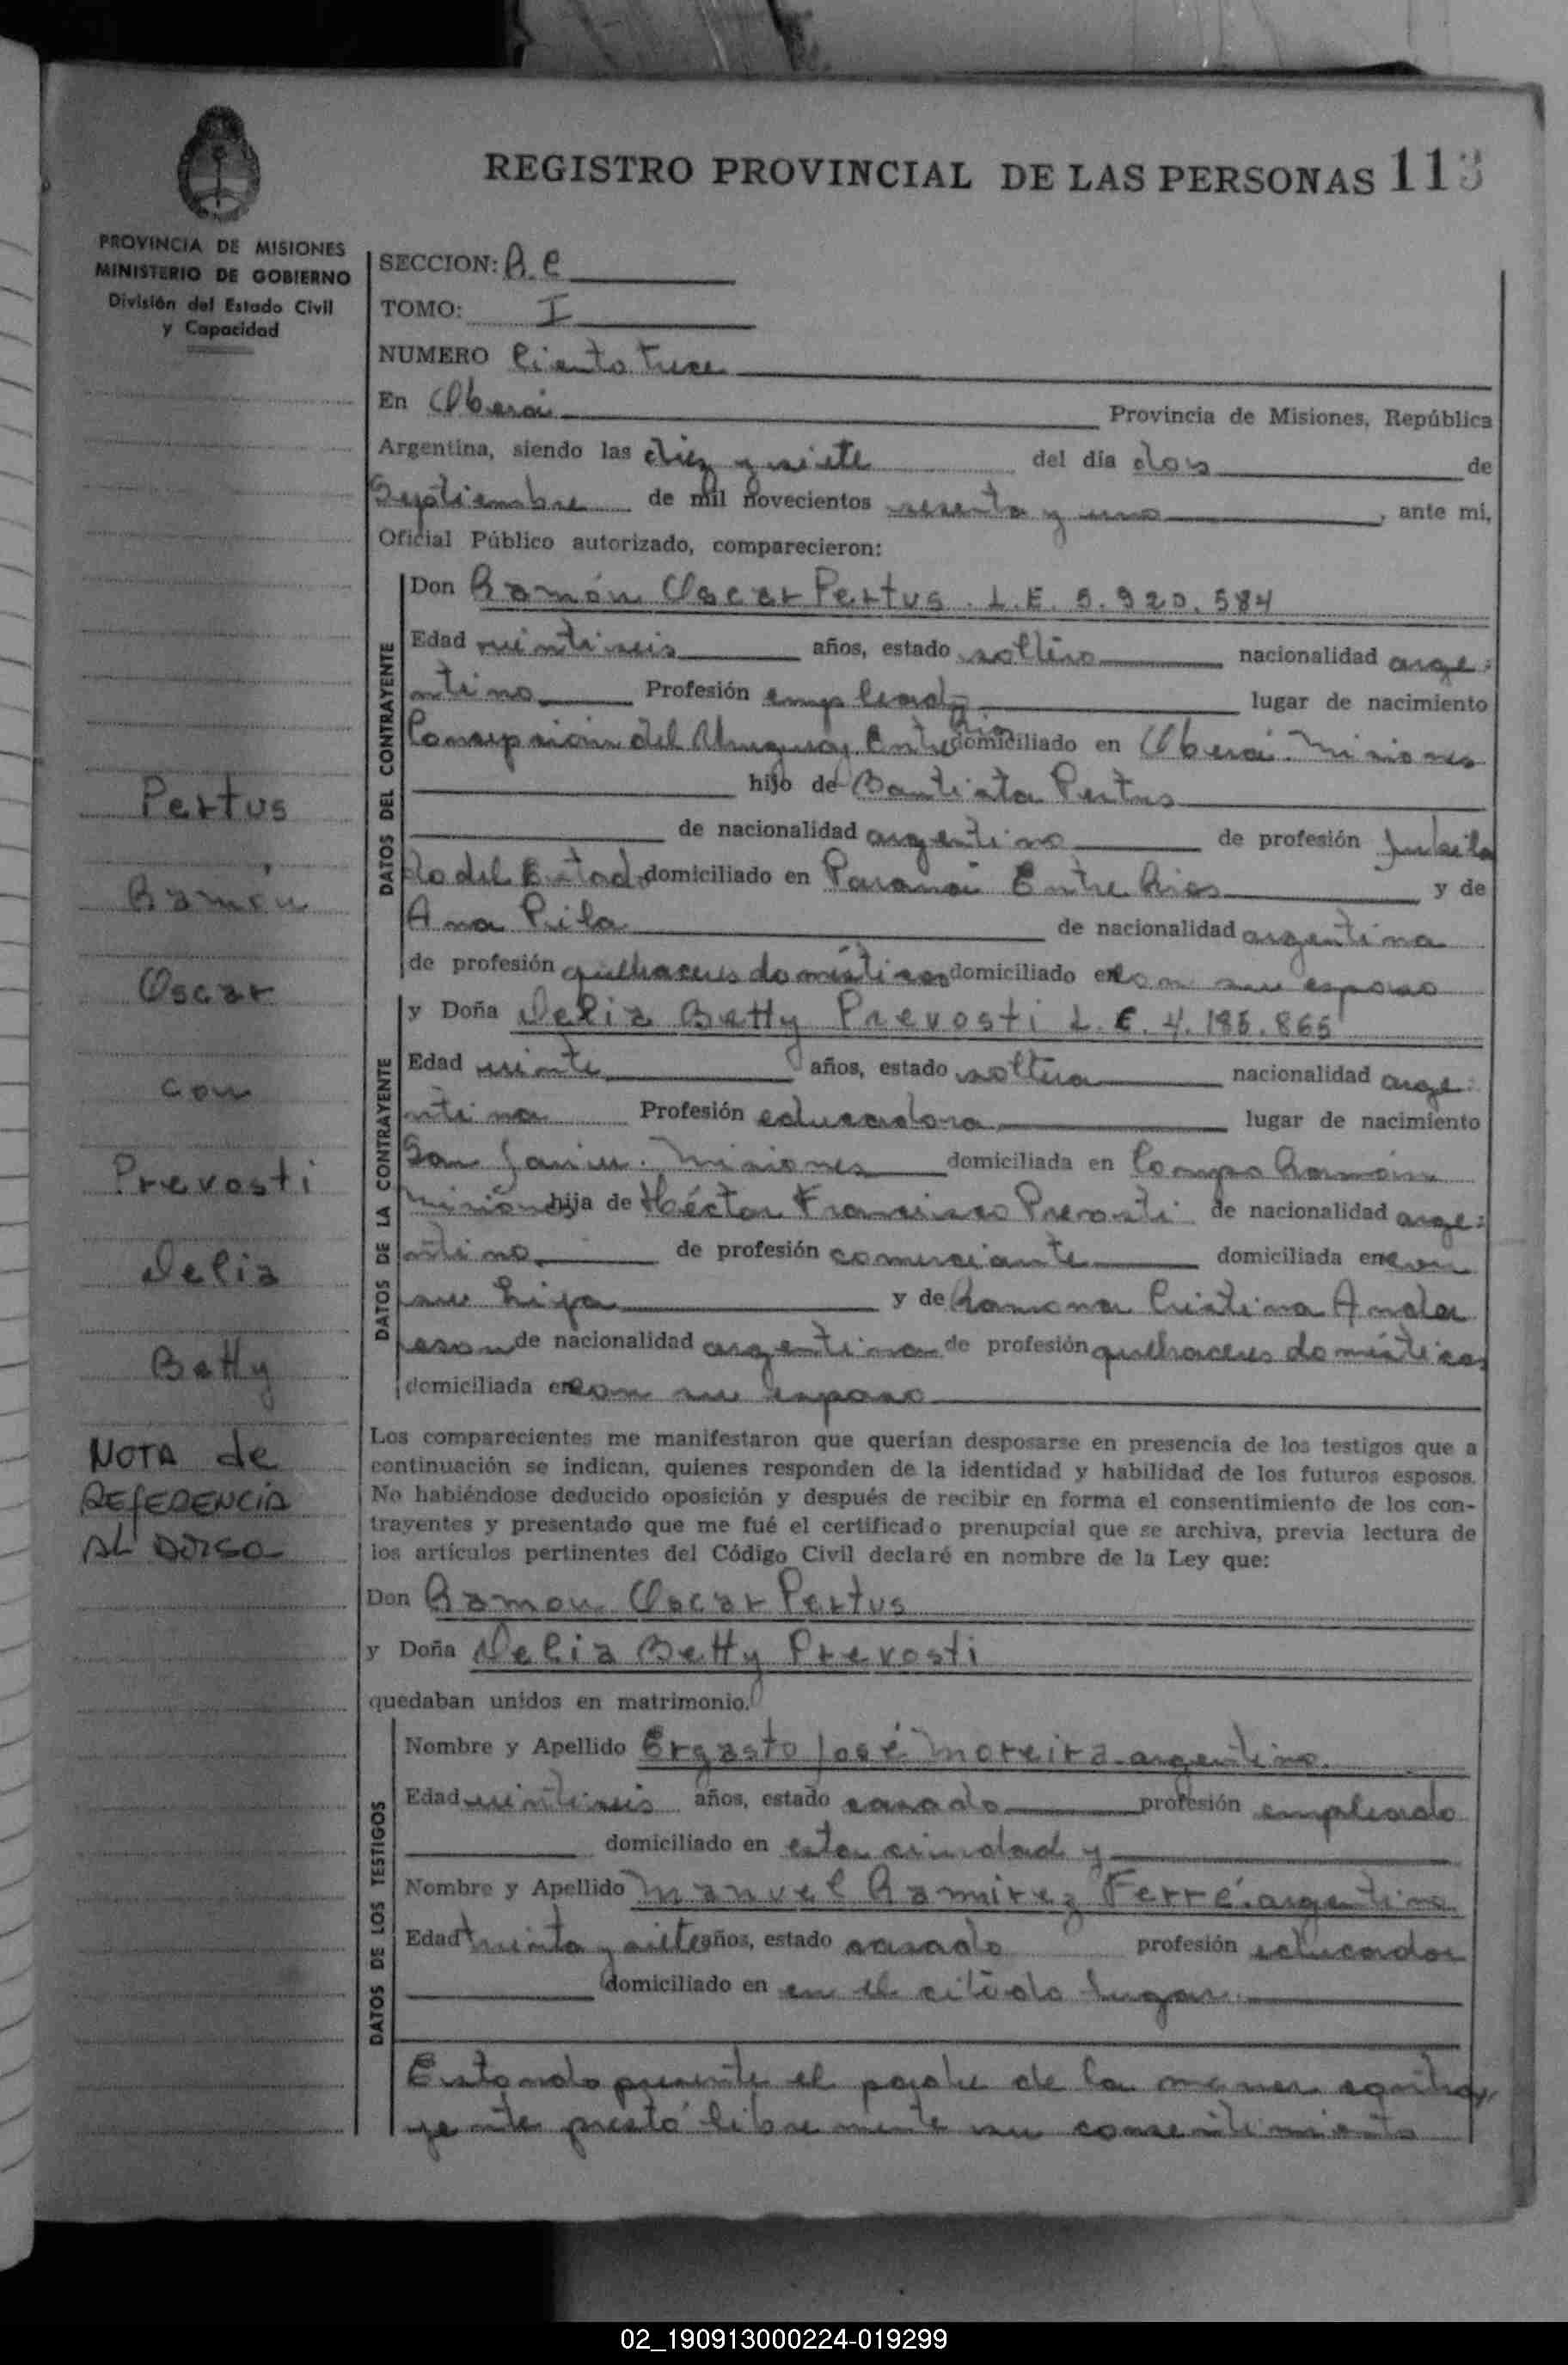 REGISTRO PROVINCIAL DE LAS PERSONAS 113
PROVINCIA DE MISIONES
MINISTERIO DE GOBIERNO
División del Estado Civil
y Capacidad
Pertus
Ramón
Oscar
con
Prevosti
Delia
Betty
NOTA de
REFERENCIA
AL DORSO
SECCION: R.C
TOMO: I
NUMERO Ciento trece
En Oberá Provincia de Misiones, República
Argentina, siendo las diez y siete del día dos de
Septiembre de mil novecientos sesenta y uno, ante mi,
Oficial Público autorizado, comparecieron:
DATOS DEL CONTRAYENTE
Don Ramón Oscar Pertus. L.E. 5.920.584
Edad veintiseis años, estado soltero nacionalidad arge-
ntino Profesión empleado lugar de nacimiento
Concepción del Uruguay Entre Rios domiciliado en Oberá. Misiones
hijo de Bautista Pertus
de nacionalidad argentino de profesión Jubila
do del Estado domiciliado en Paraná Entre Rios y de
Ana Piila de nacionalidad argentina
de profesión quehaceres domésticos domiciliado en con su esposo
DATOS DE LA CONTRAYENTE
y Doña Delia Betty Prevosti L.E. 4.185.865
Edad veinte años, estado soltera nacionalidad arge-
ntina Profesión educadora lugar de nacimiento
San Javier. Misiones domiciliada en Campo Ramón
Misiones hija de Héctor Francisco Prevosti de nacionalidad arge-
ntino de profesión comerciante domiciliada en con
su hija y de Ramona Cristina Ander
eson de nacionalidad argentina de profesión quehaceres domésticos
domiciliada en con su esposo
Los comparecientes me manifestaron que querían desposarse en presencia de los testigos que a
continuación se indican, quienes responden de la identidad y habilidad de los futuros esposos.
No habiéndose deducido oposición y después de recibir en forma el consentimiento de los con-
trayentes y presentado que me fué el certificado prenupcial que se archiva, previa lectura de
los artículos pertinentes del Código Civil declaré en nombre de la Ley que:
Don Ramon Oscar Pertus
y Doña Delia Betty Prevosti
quedaban unidos en matrimonio.
DATOS DE LOS TESTIGOS
Nombre y Apellido Ergasto José Moreira argentino.
Edad veintiseis años, estado casado profesión empleado
domiciliado en esta ciudad y
Nombre y Apellido Manuel Ramirez Ferré. argentino
Edad treinta y siete años, estado casado profesión educador
domiciliado en en el citado lugar.
Estando presente el padre de la menor contra-
yente prestó libremente su consentimiento
02_190913000224-019299